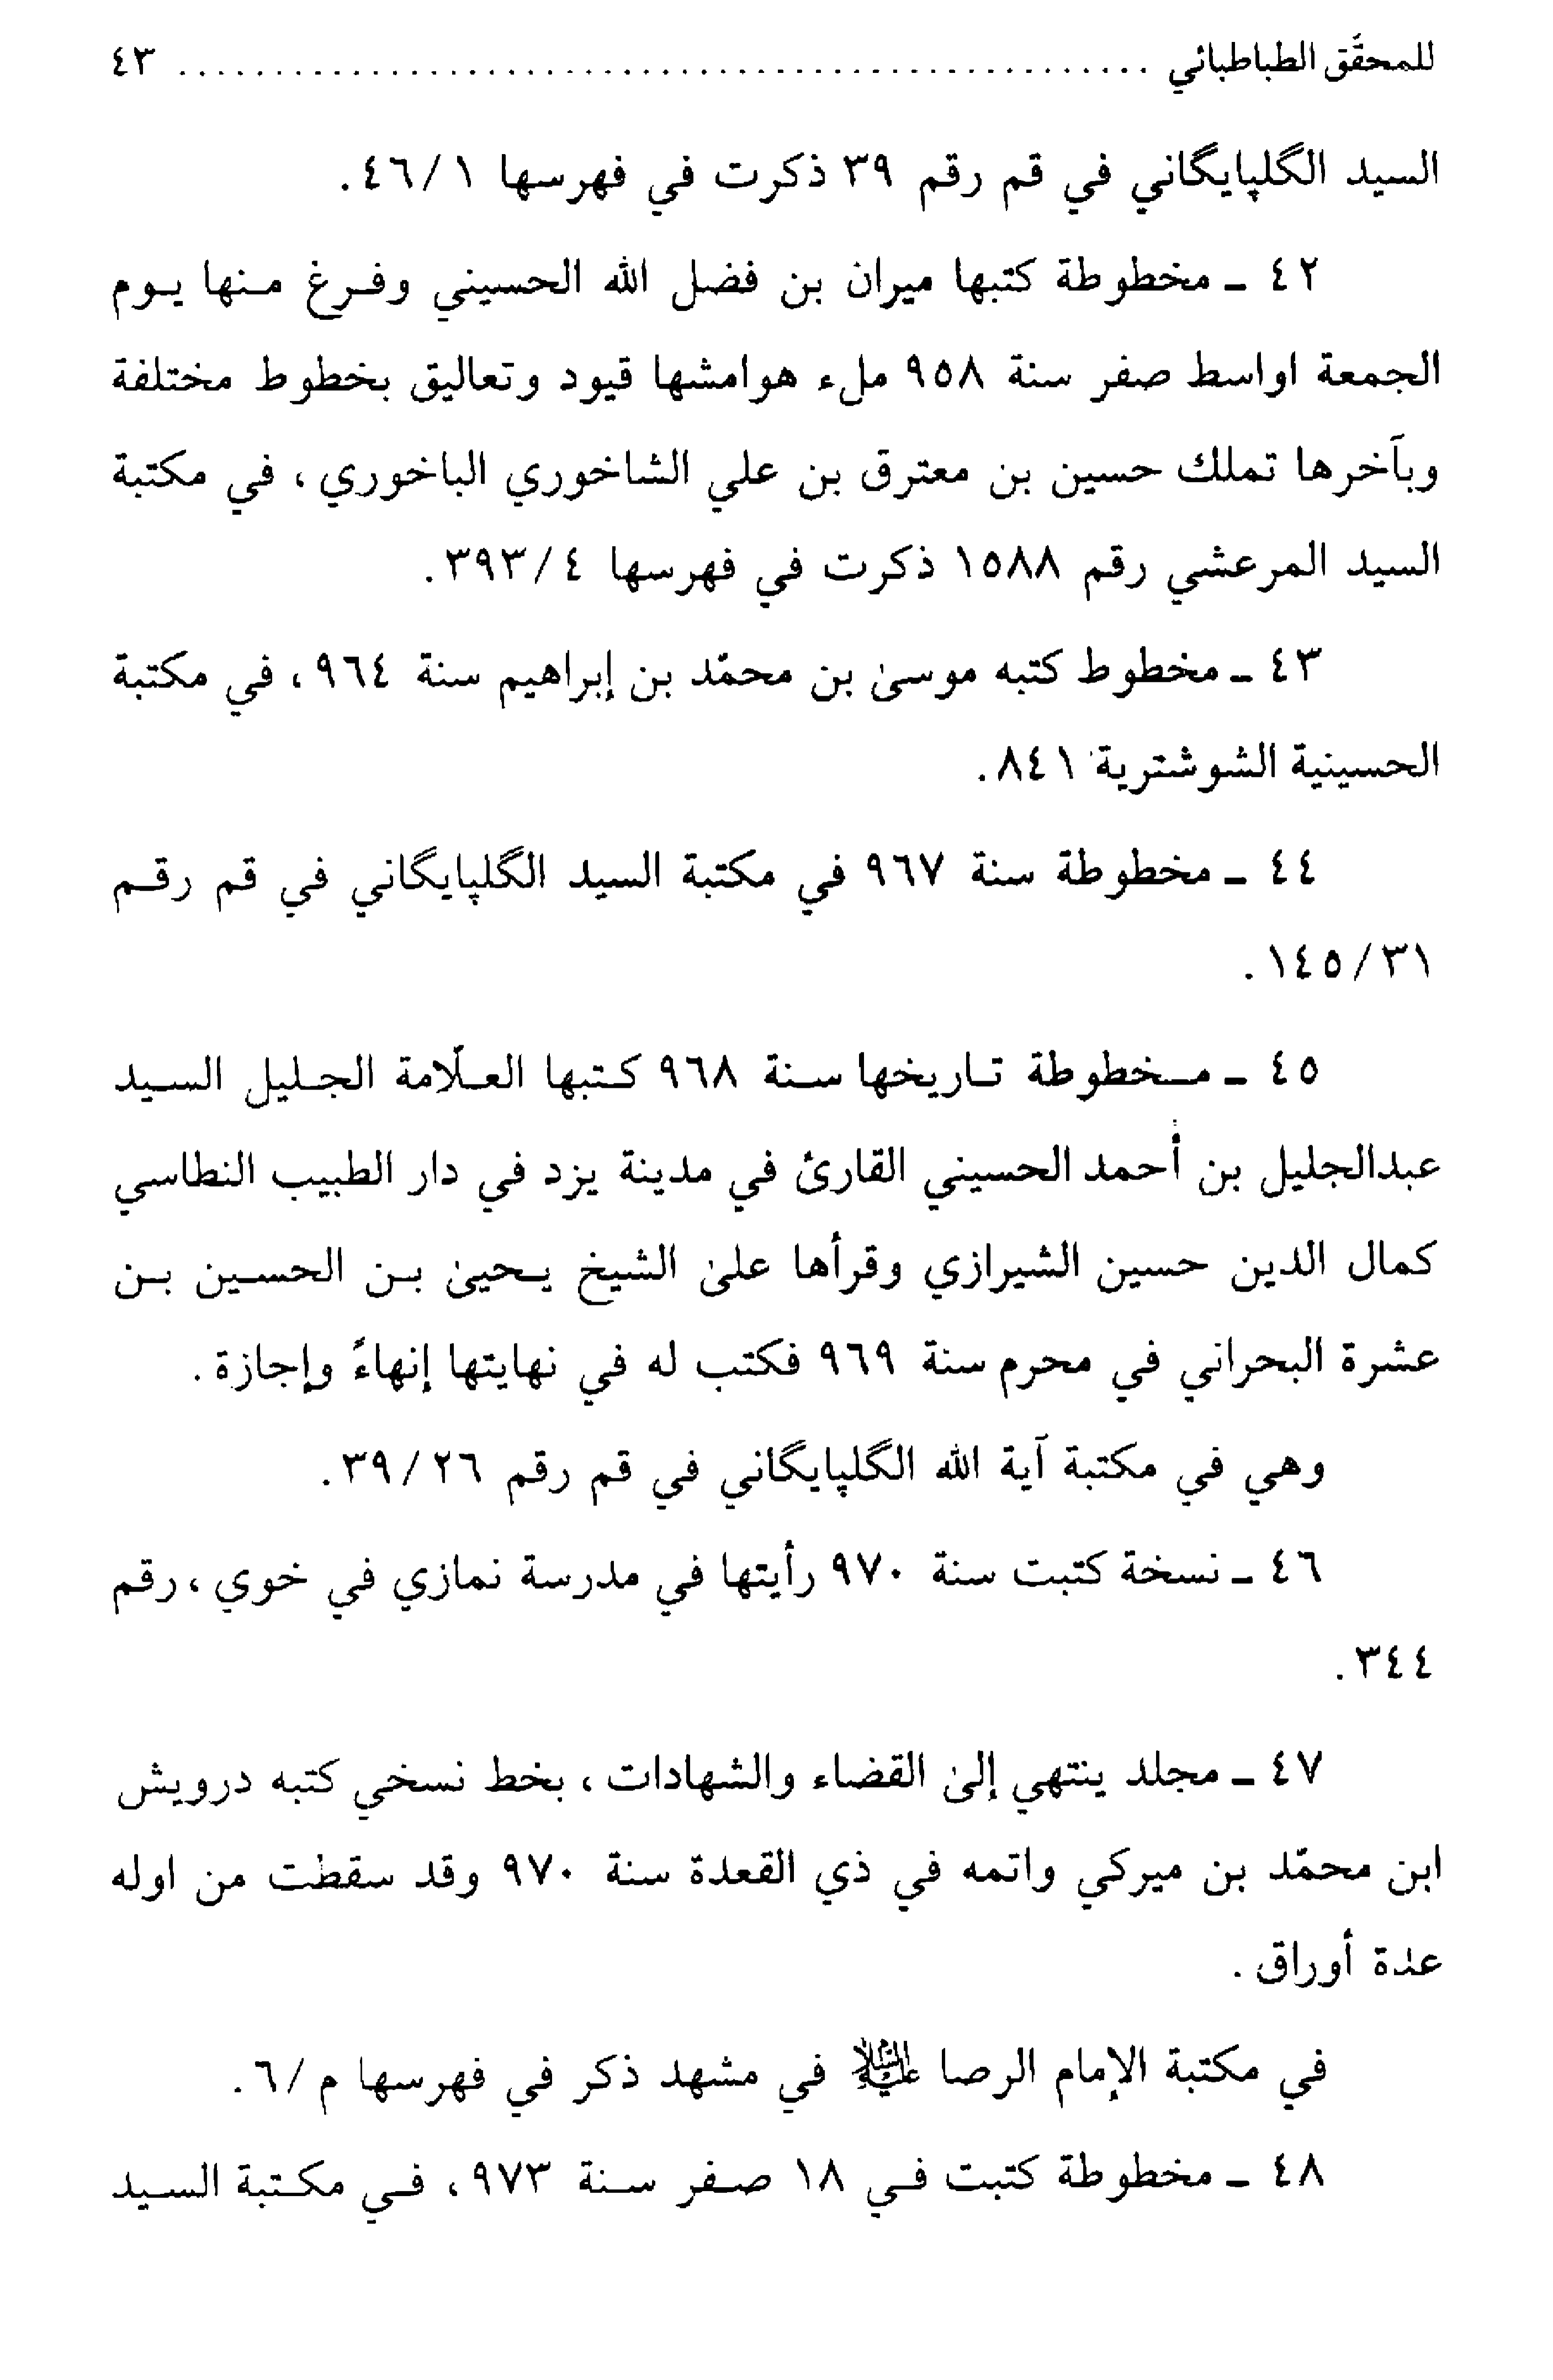 للمحقّق الطباطبائي ........................................................ ٤٣
السيد الگلپايگاني في قم رقم ٣٩ ذكرت في فهرسها ٤٦/١.
٤٢ ـ مخطوطة كتبها ميران بن فضل الله الحسيني وفرغ منها يوم
الجمعة اواسط صفر سنة ٩٥٨ ملء هوامشها قيود وتعاليق بخطوط مختلفة
وبآخرها تملك حسين بن معترق بن علي الشاخوري الباخوري ، في مكتبة
السيد المرعشي رقم ١٥٨٨ ذكرت في فهرسها ٣٩٣/٤.
٤٣ ـ مخطوط كتبه موسىٰ بن محمّد بن إبراهيم سنة ٩٦٤ ، في مكتبة
الحسينية الشوشترية ٨٤١.
٤٤ ـ مخطوطة سنة ٩٦٧ في مكتبة السيد الگلپايگاني في قم رقم
١٤٥/٣١ .
٤٥ ـ مخطوطة تاريخها سنة ٩٦٨ كتبها العلّامة الجليل السيد
عبدالجليل بن أحمد الحسيني القارئ في مدينة يزد في دار الطبيب النطاسي
كمال الدين حسين الشيرازي وقرأها علىٰ الشيخ يحيىٰ بن الحسين بن
عشرة البحراني في محرم سنة ٩٦٩ فكتب له في نهايتها إنهاءً وإجازة .
وهي في مكتبة آية الله الگلپايگاني في قم رقم ٣٩/٢٦.
٤٦ ـ نسخة كتبت سنة ٩٧٠ رأيتها في مدرسة نمازي في خوي ، رقم
٣٤٤ .
٤٧ ـ مجلد ينتهي إلىٰ القضاء والشهادات ، بخط نسخي كتبه درويش
ابن محمّد بن ميركي واتمه في ذي القعدة سنة ٩٧٠ وقد سقطت من اوله
عدة أوراق .
في مكتبة الإمام الرصا عليه السلام في مشهد ذكر في فهرسها م/٦.
٤٨ ـ مخطوطة كتبت في ١٨ صفر سنة ٩٧٣ ، في مكتبة السيد